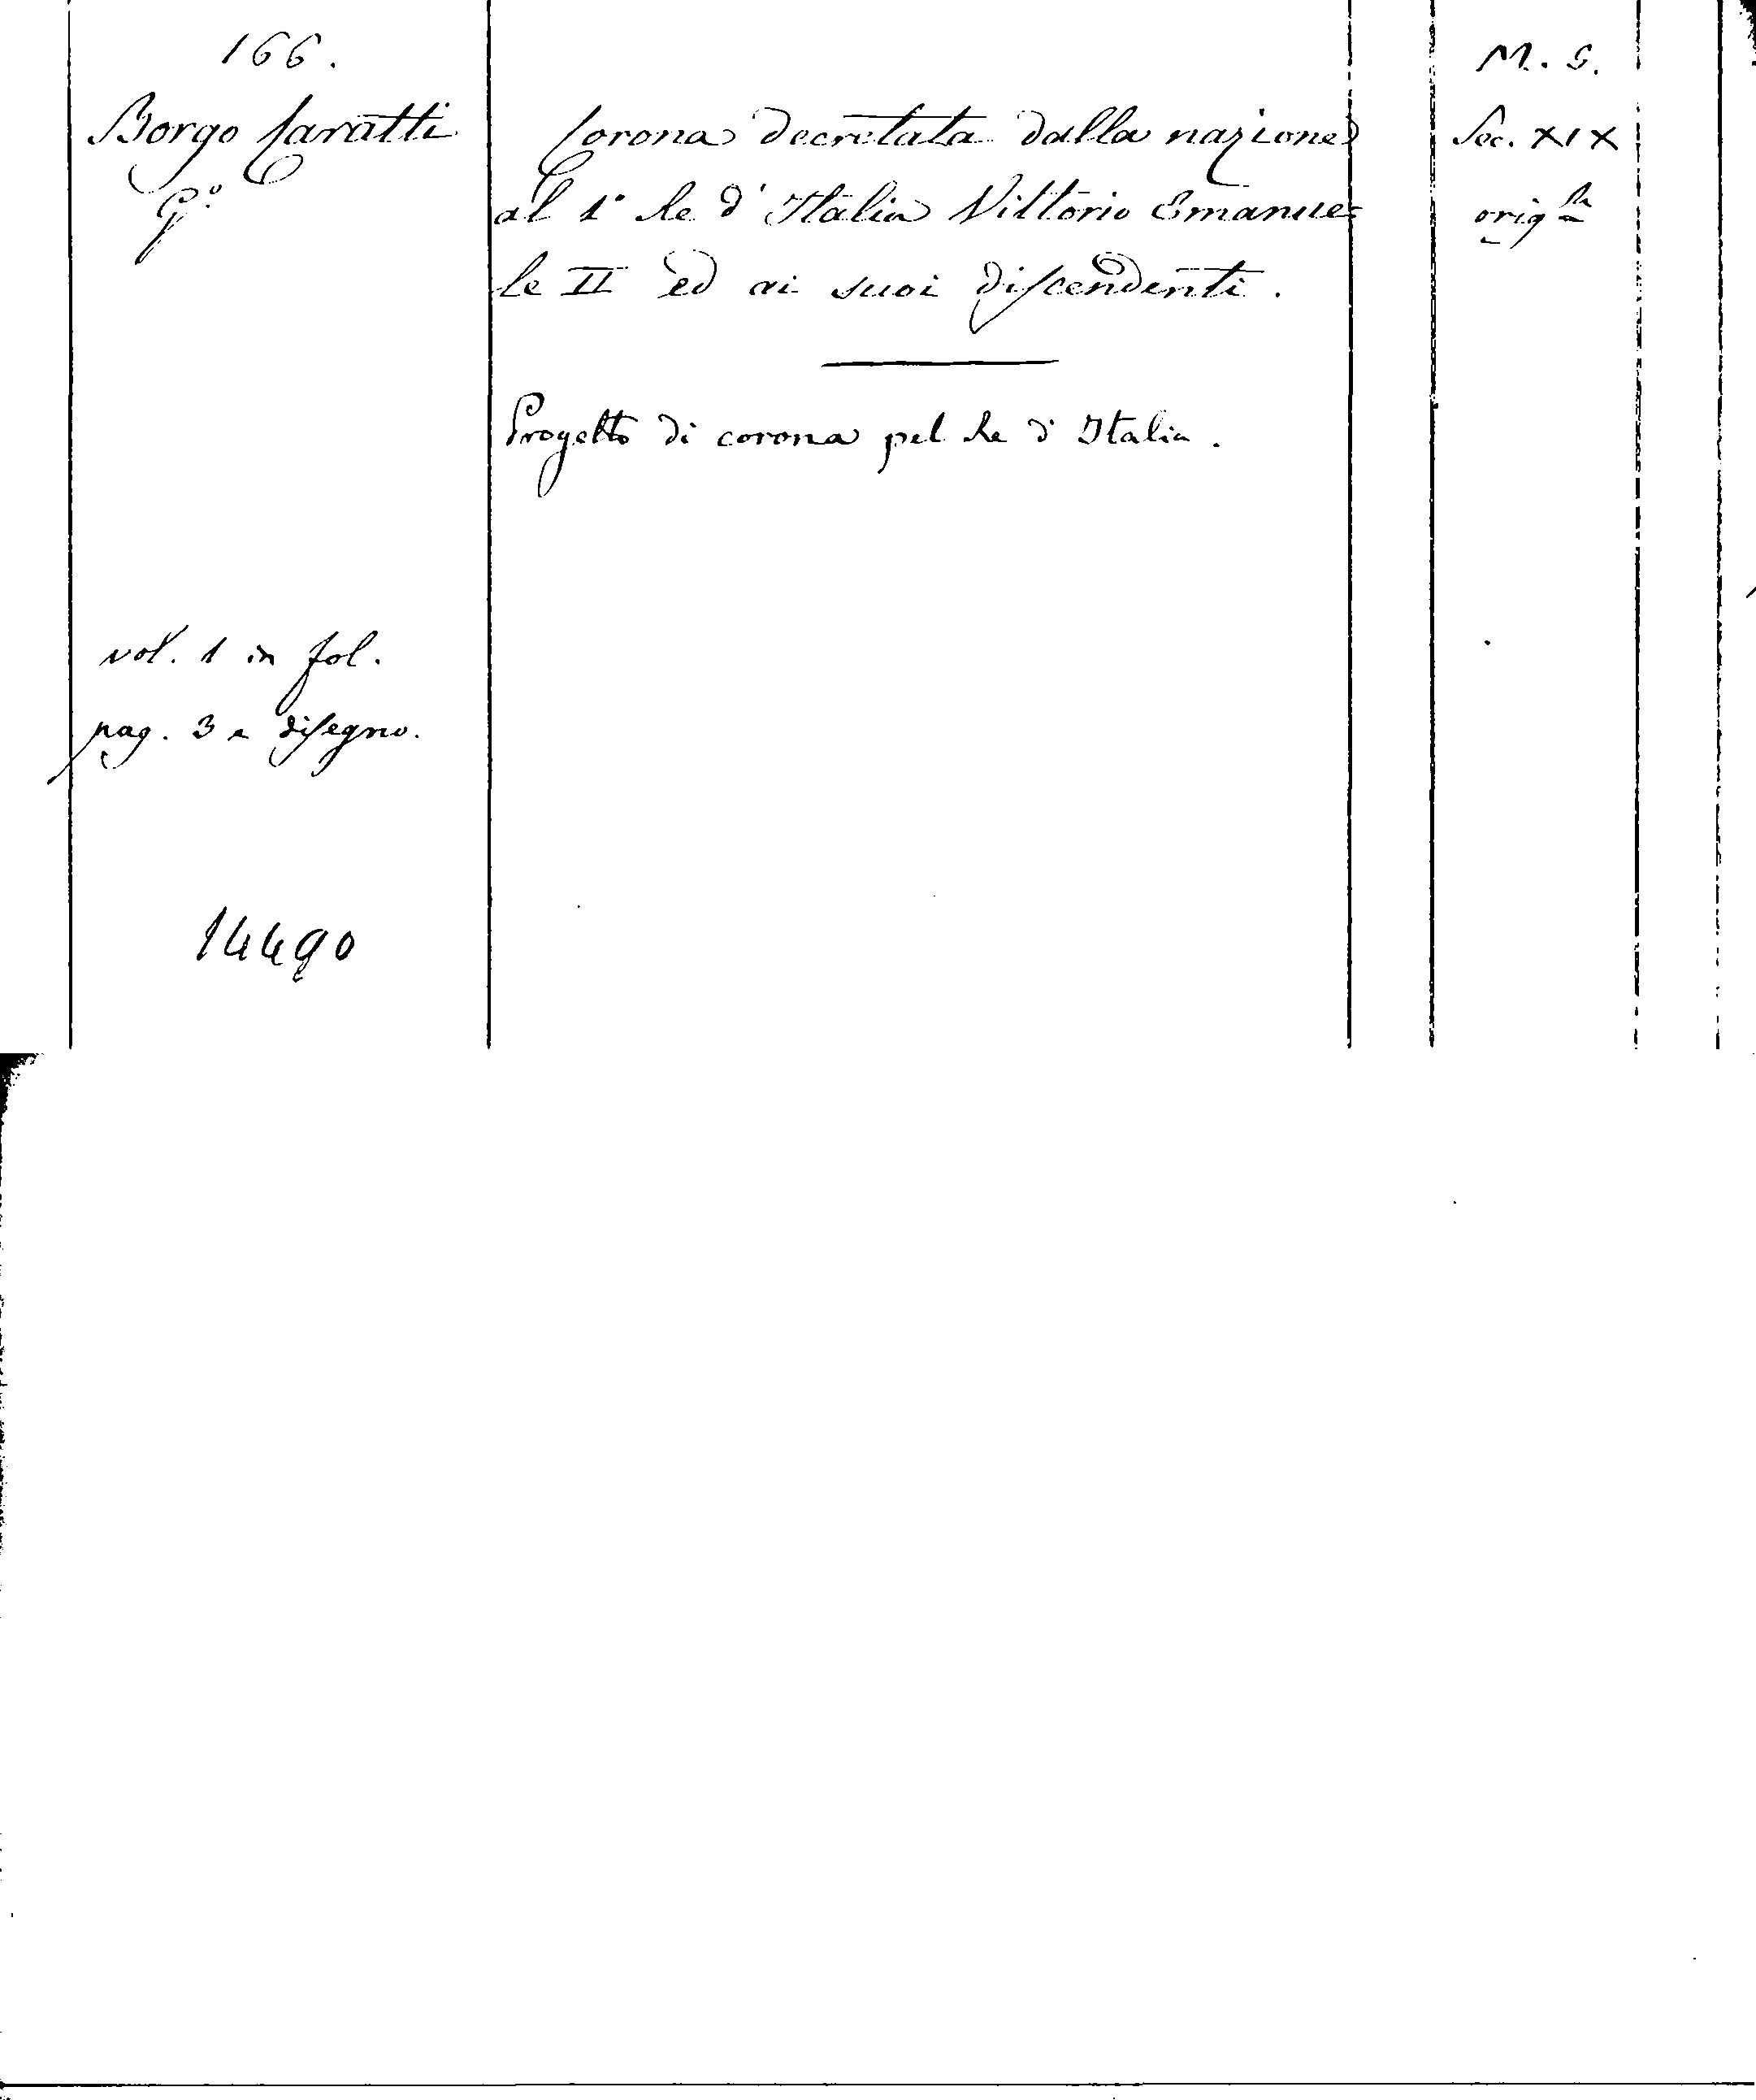 166.
Borgo Caratti
G.°
vol. 1 in fol.
pag. 3 e disegno.
14490
Corona decretata dalla nazione
al 1° Re d'Italia Vittorio Emanue=
le II ed ai suoi discendenti.
Progetto di corona pel Re d'Italia.
M. S.
Sec. XIX
orig.le